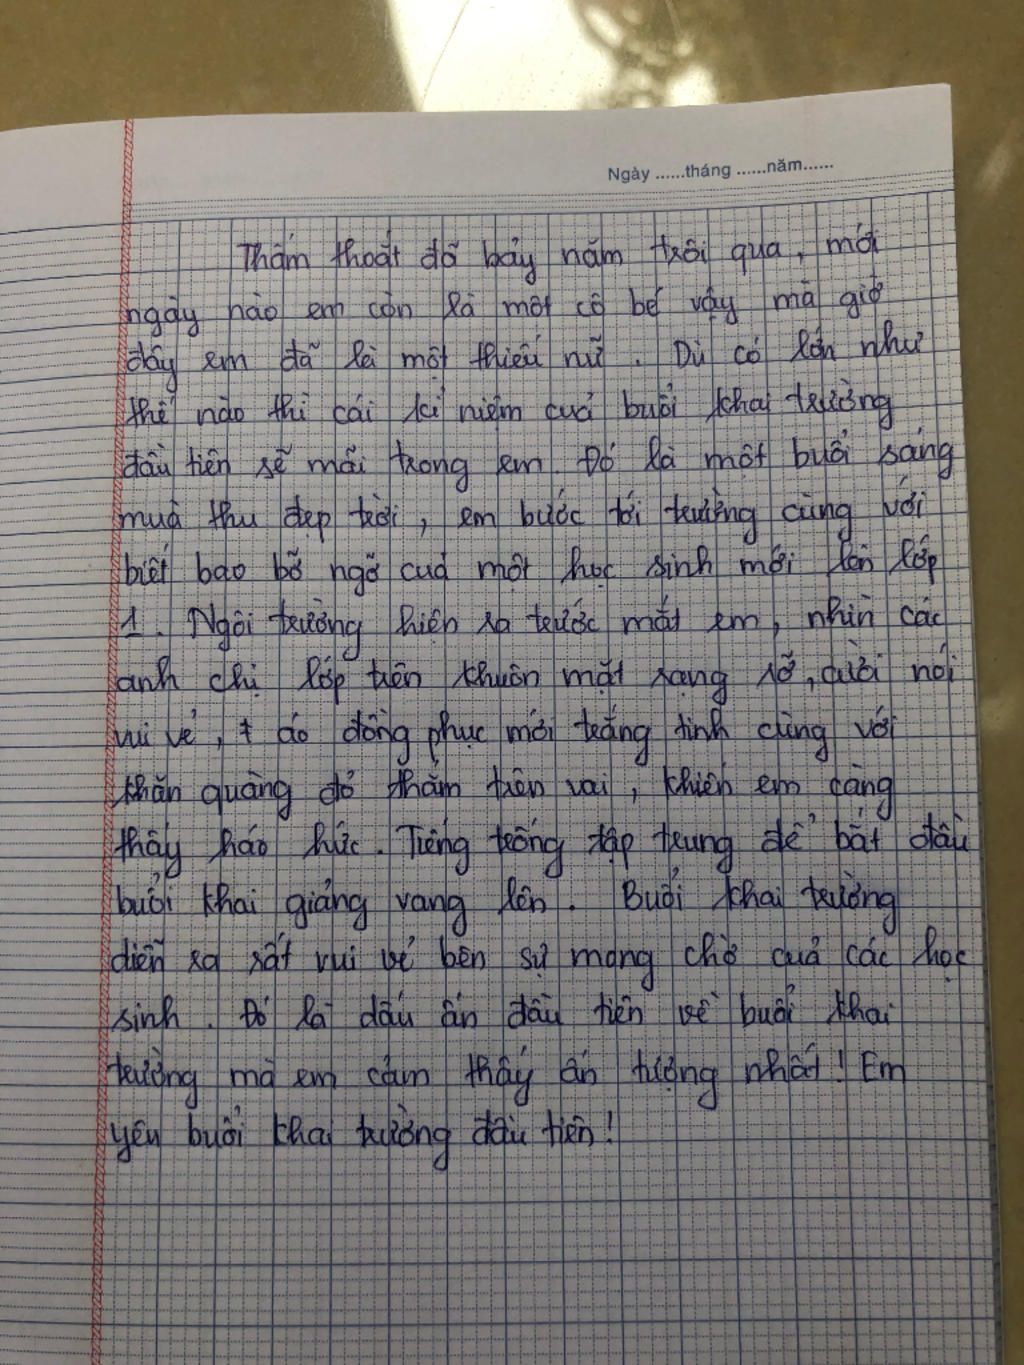 Ngày ......tháng ......năm......
Thấm thoát đã bảy năm trôi qua, mới
ngày nào em còn là một cô bé vậy mà giờ
đây em đã là một thiếu nữ. Dù có lớn như
thế nào thì cái kỉ niệm của buổi khai trường
đầu tiên sẽ mãi trong em. Đó là một buổi sáng
mùa thu đẹp trời, em bước tới trường cùng với
biết bao bỡ ngỡ của một học sinh mới lên lớp
1. Ngôi trường hiện ra trước mắt em, nhìn các
anh chị lớp trên khuôn mặt rạng rỡ, cười nói
vui vẻ, áo đồng phục mới trắng tinh cùng với
khăn quàng đỏ thắm trên vai, khiến em càng
thấy háo hức. Tiếng trống tập trung để bắt đầu
buổi khai giảng vang lên. Buổi khai trường
diễn ra rất vui vẻ bên sự mong chờ của các học
sinh. Đó là dấu ấn đầu tiên về buổi khai
trường mà em cảm thấy ấn tượng nhất! Em
yêu buổi khai trường đầu tiên!